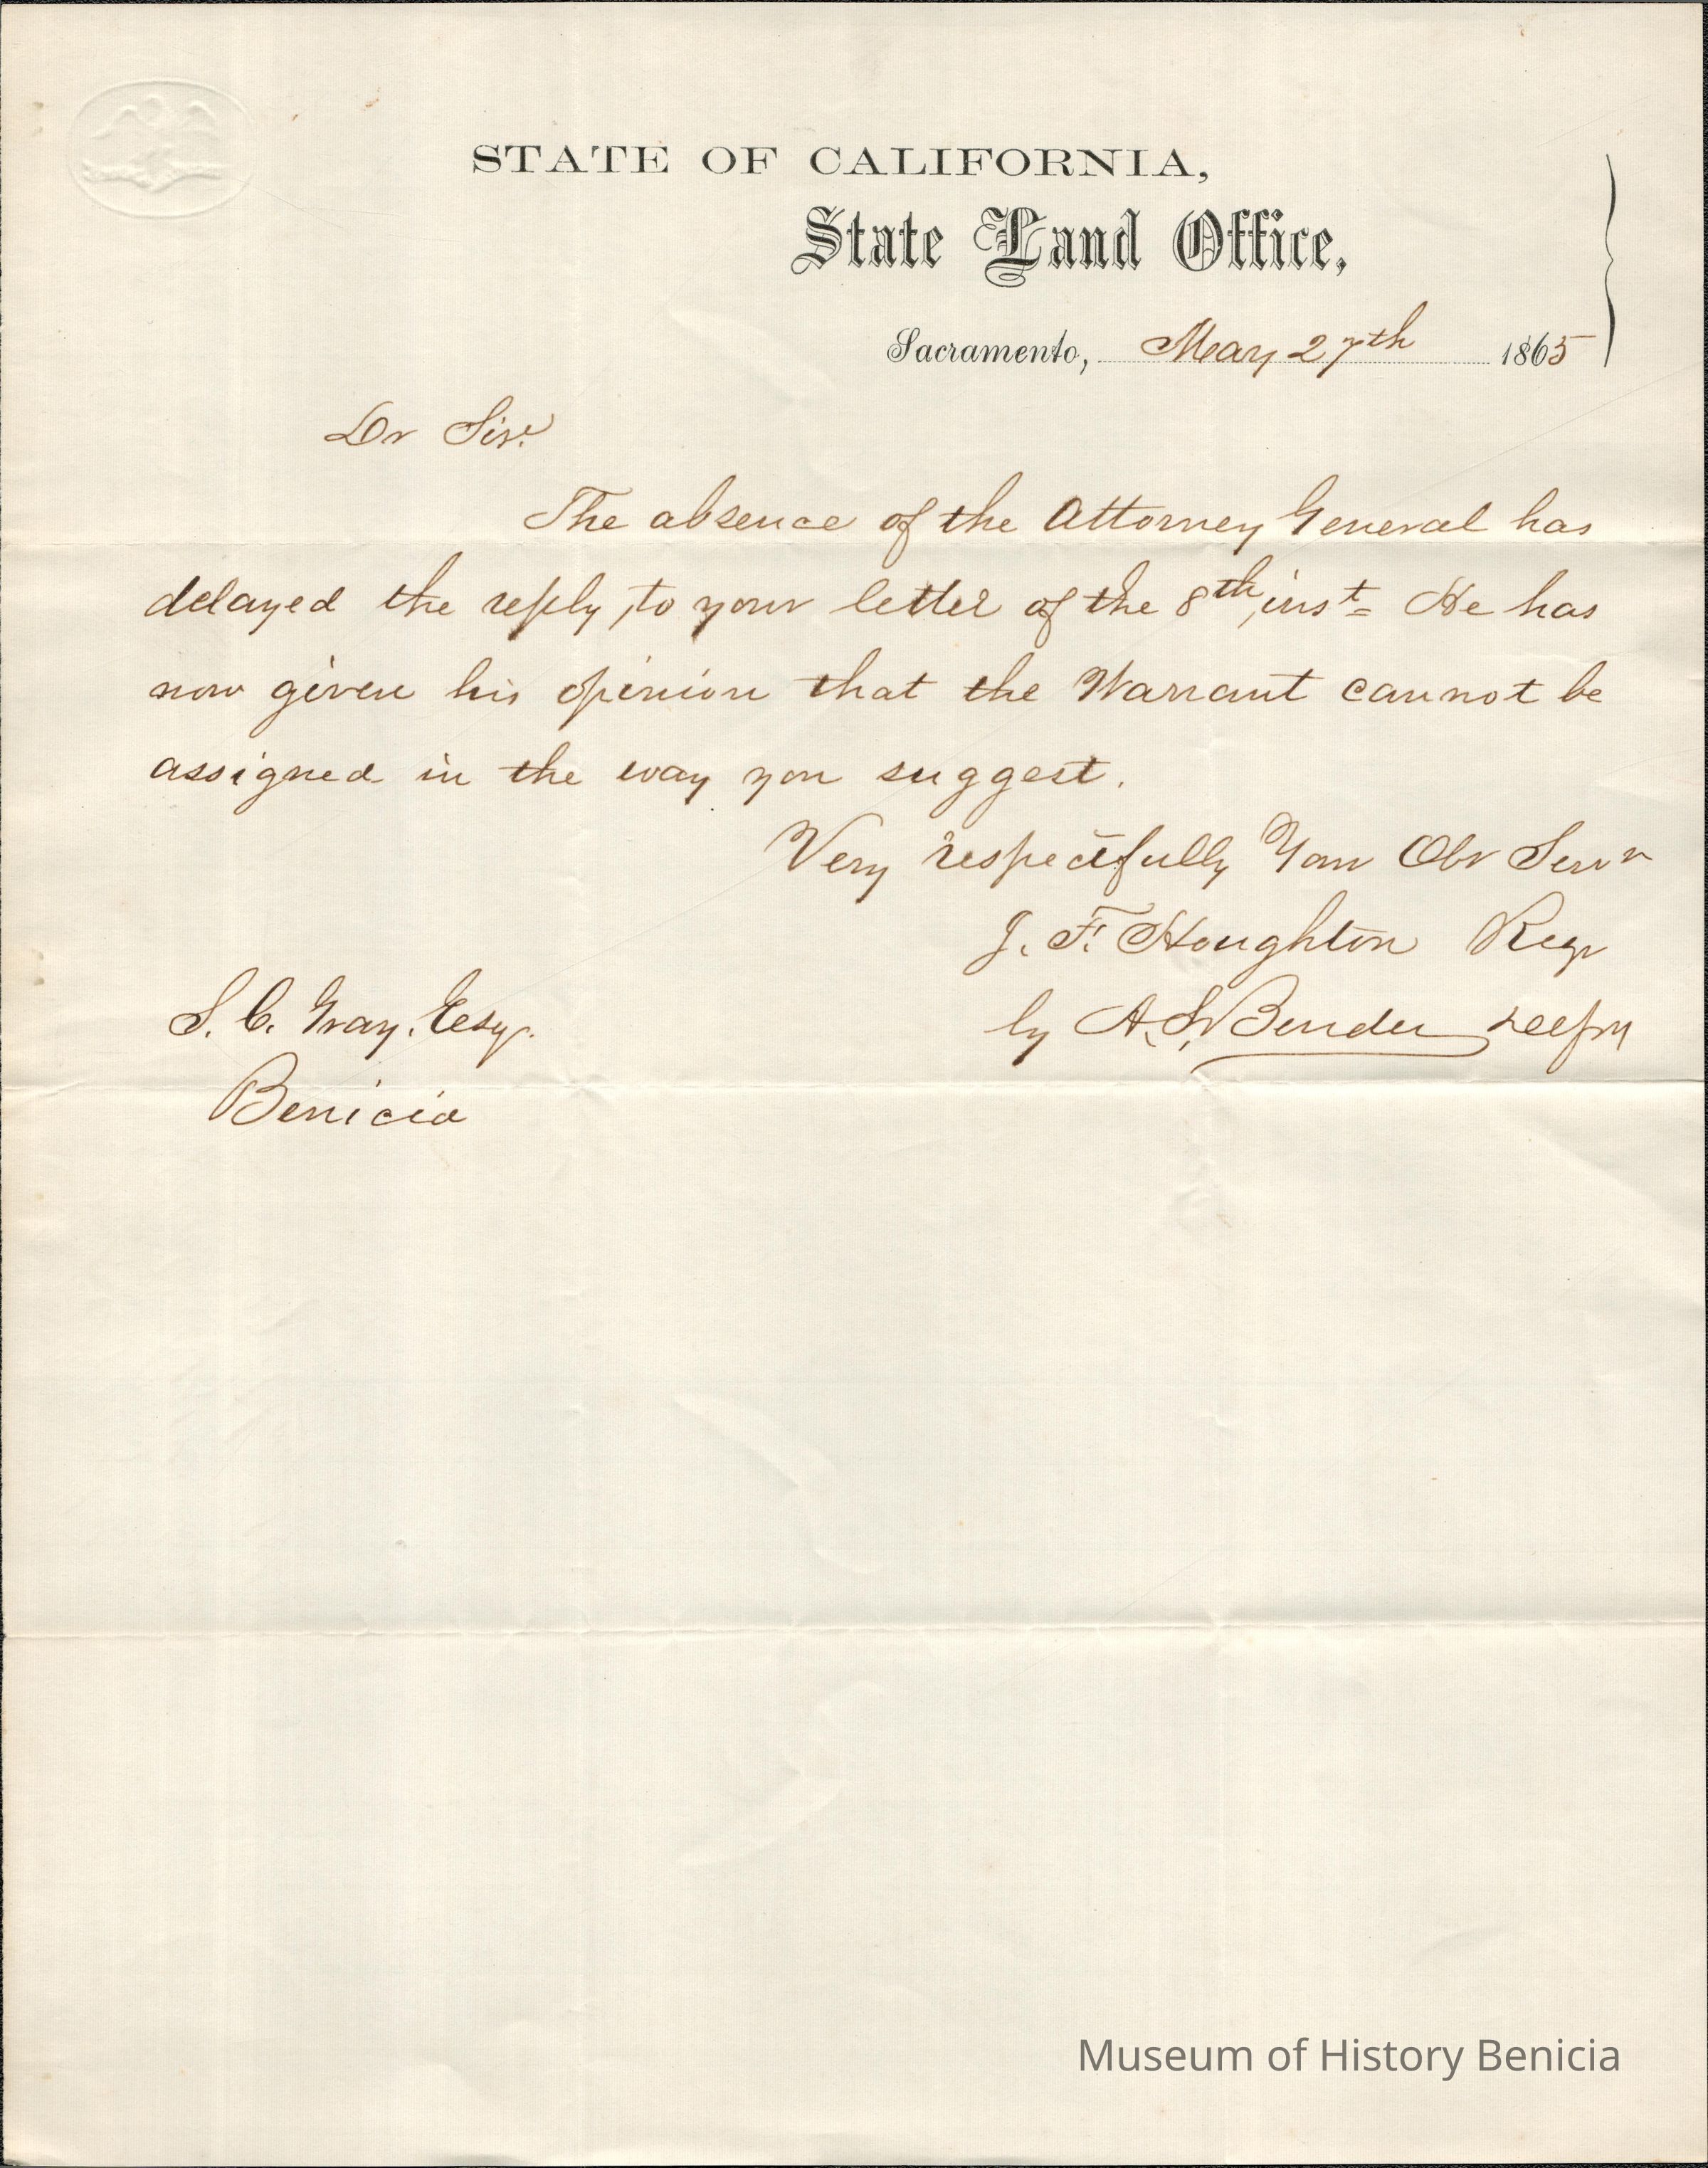 STATE OF CALIFORNIA,
State Land Office,
Sacramento, May 27th 1865
Dr Sir.
The absence of the Attorney General has
delayed the reply, to your letter of the 8th, inst= He has
now given his opinion that the Warrant cannot be
assigned in the way you suggest.
Very respectfully Your Obr Servr
J. F. Houghton Regr
by A. S. Bender Depy
S. C. Gray. Esqr.
Benicia
Museum of History Benicia